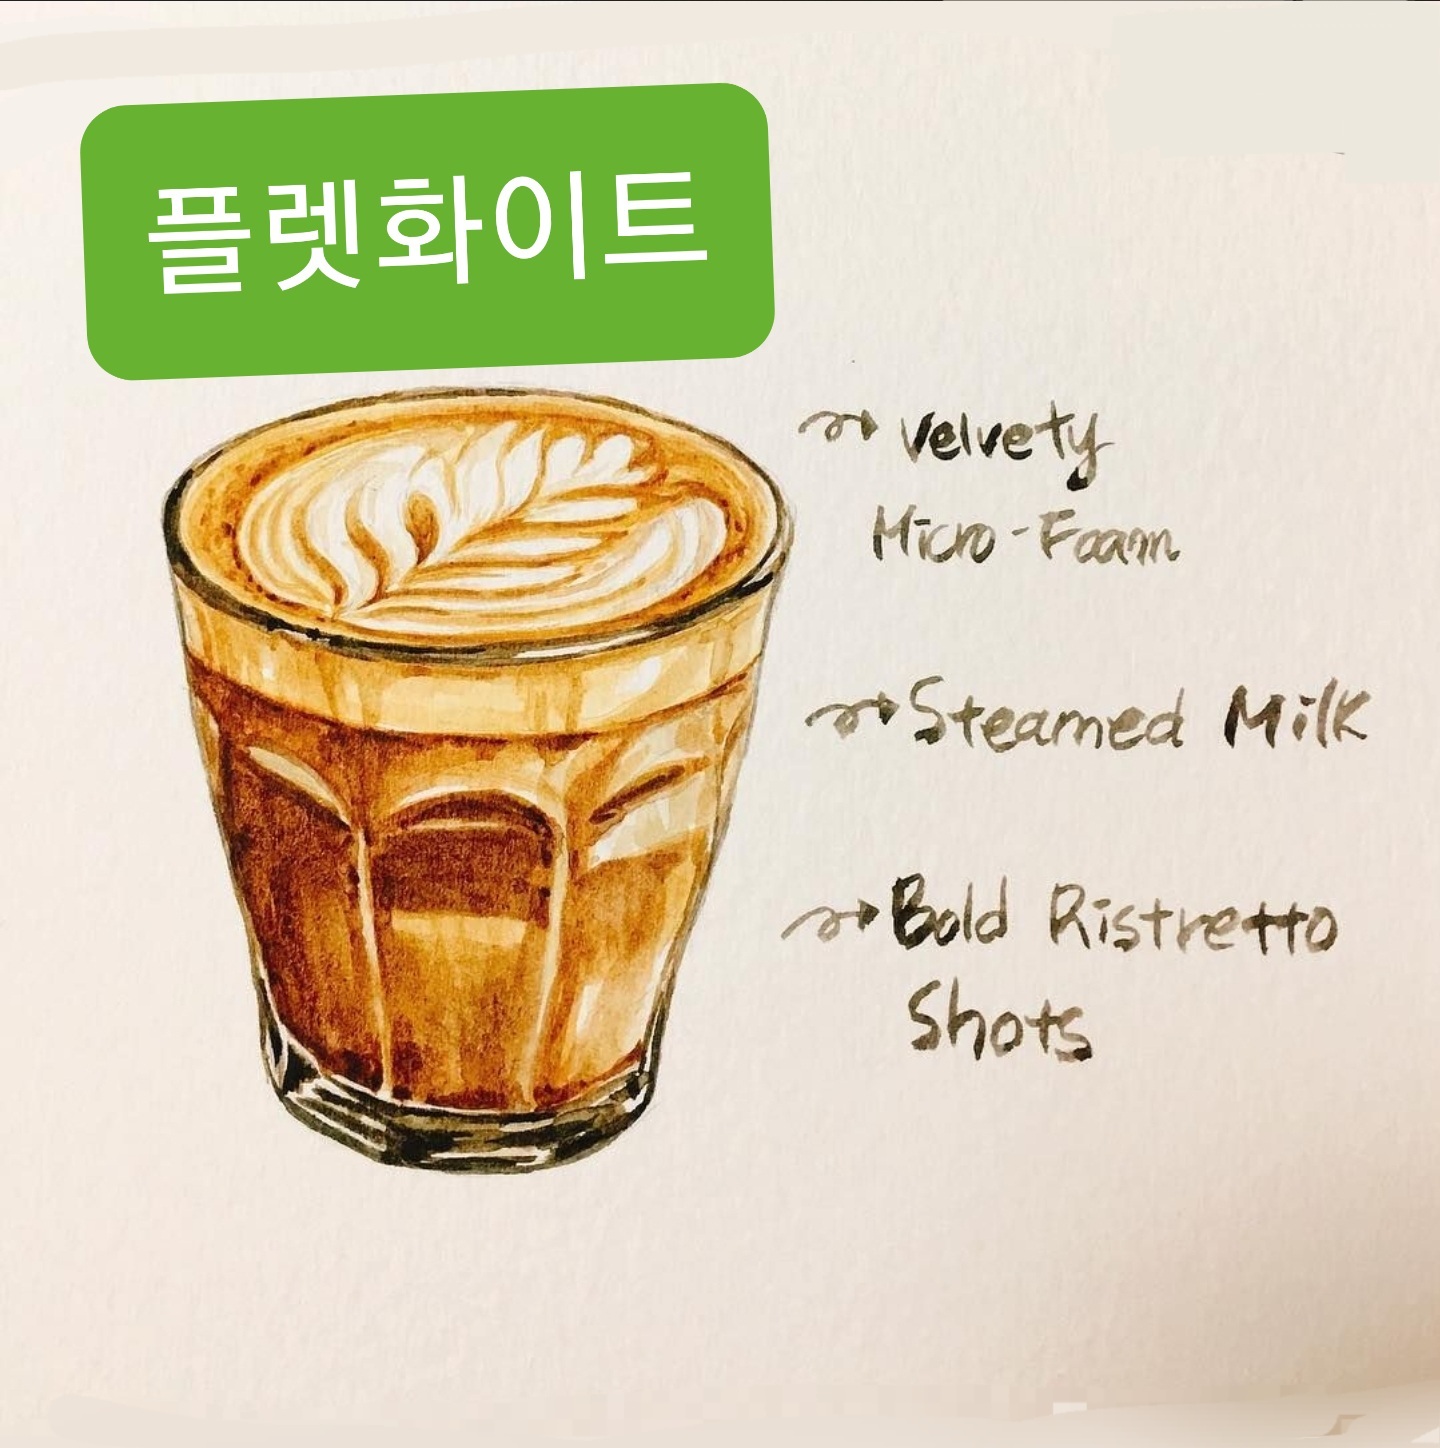 플렛화이트
Velvety
Micro-Foam
Steamed Milk
Bold Ristretto
Shots